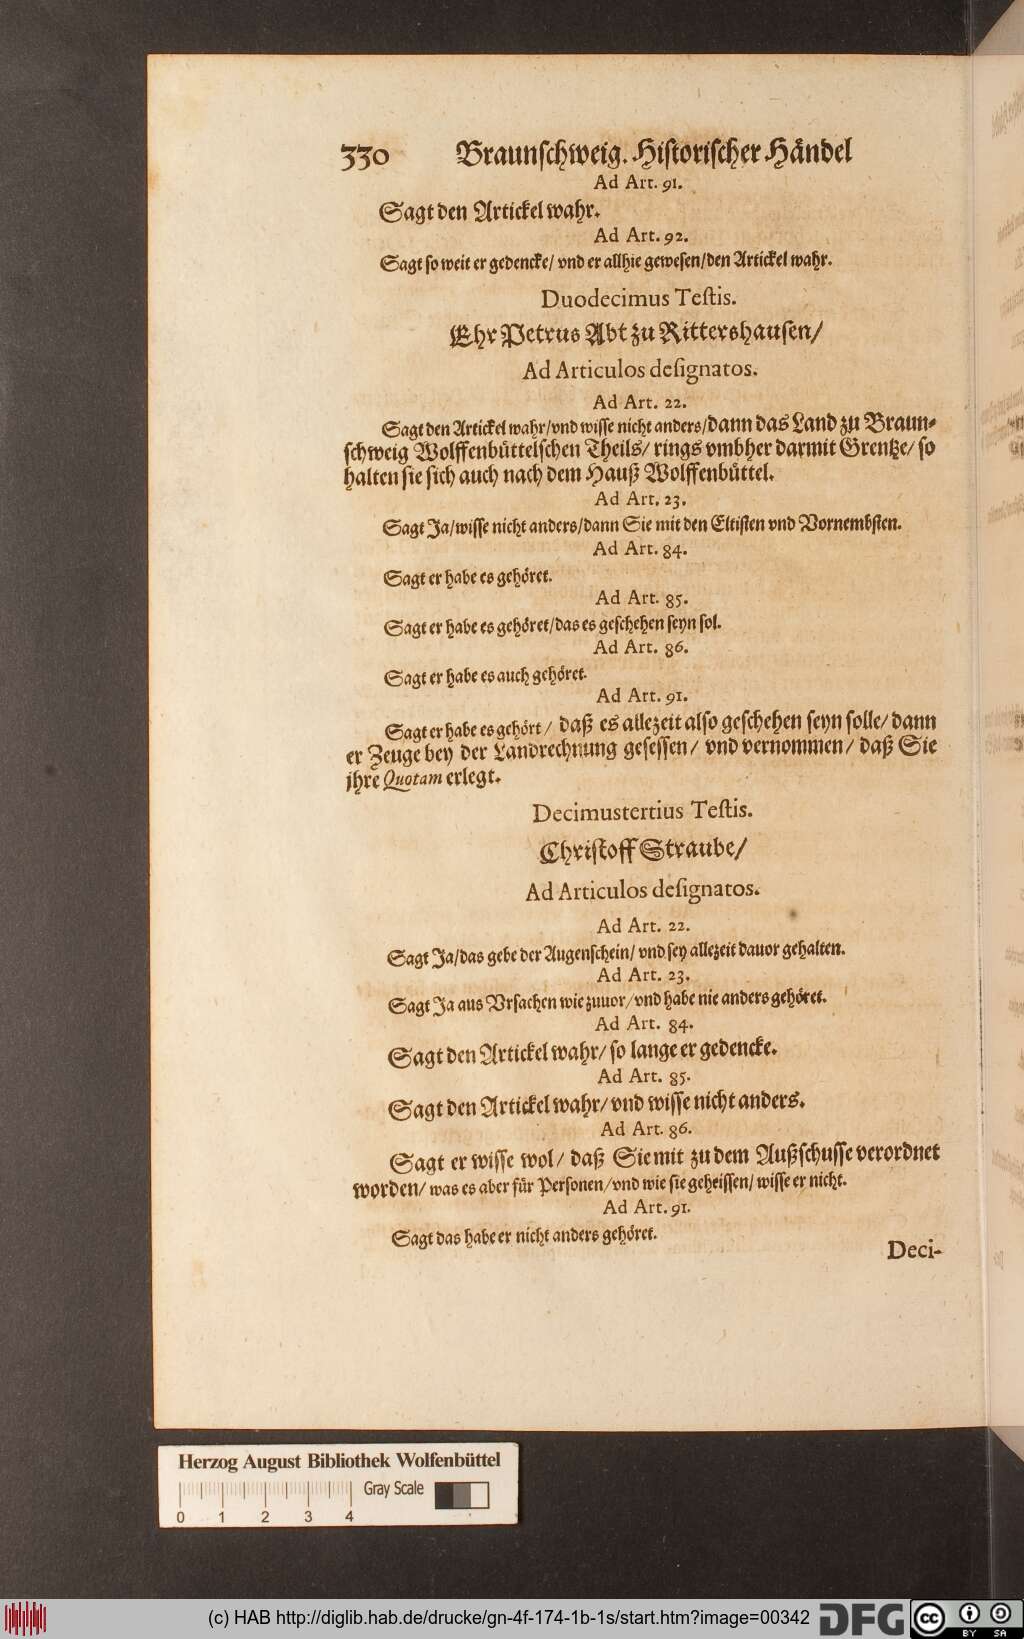 330 Braunschweig. Historischer Händel
Ad Art. 91.
Sagt den Artickel wahr.
Ad Art. 92.
Sagt so weit er gedencke/ vnd er allhie gewesen/den Artickel wahr.
Duodecimus Testis.
Ehr Petrus Abt zu Rittershausen/
Ad Articulos designatos.
Ad Art. 22.
Sagt den Artickel wahr/vnd wisse nicht anders/dann das Land zu Braun-
schweig Wolffenbüttelschen Theils/ rings vmbher darmit Grentze/ so
halten sie sich auch nach dem Hauß Wolffenbüttel.
Ad Art. 23.
Sagt Ja/wisse nicht anders/dann Sie mit den Eltisten vnd Vornembsten.
Ad Art. 84.
Sagt er habe es gehöret.
Ad Art. 85.
Sagt er habe es gehöret/das es geschehen seyn sol.
Ad Art. 86.
Sagt er habe es auch gehöret.
Ad Art. 91.
Sagt er habe es gehört/ daß es allezeit also geschehen seyn solle/ dann
er Zeuge bey der Landrechnung gesessen/ vnd vernommen/ daß Sie
jhre Quotam erlegt.
Decimustertius Testis.
Christoff Straube/
Ad Articulos designatos.
Ad Art. 22.
Sagt Ja/das gebe der Augenschein/ vnd sey allezeit dauor gehalten.
Ad Art. 23.
Sagt Ja aus Vrsachen wie zuuor/vnd habe nie anders gehöret.
Ad Art. 84.
Sagt den Artickel wahr/ so lange er gedencke.
Ad Art. 85.
Sagt den Artickel wahr/ vnd wisse nicht anders.
Ad Art. 86.
Sagt er wisse wol/ daß Sie mit zu dem Außschusse verordnet
worden/ was es aber für Personen/vnd wie sie geheissen/ wisse er nicht.
Ad Art. 91.
Sagt das habe er nicht anders gehöret.
Deci-
Herzog August Bibliothek Wolfenbüttel
Gray Scale
0 1 2 3 4
(c) HAB http://diglib.hab.de/drucke/gn-4f-174-1b-1s/start.htm?image=00342 DFG cc BY SA